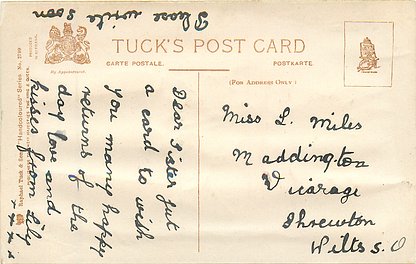 Please write soon
TUCK'S POST CARD
CARTE POSTALE.
POSTKARTE.
By Appointment.
(FOR ADDRESS ONLY)
Raphael Tuck & Sons' "Handcoloured" Series No.
Dear Sister just
a card to wish
you many happy
returns of the
day love and
kisses from Lily
Miss L. Miles
Maddington
Vicarage
Shrewton
Wilts S.O